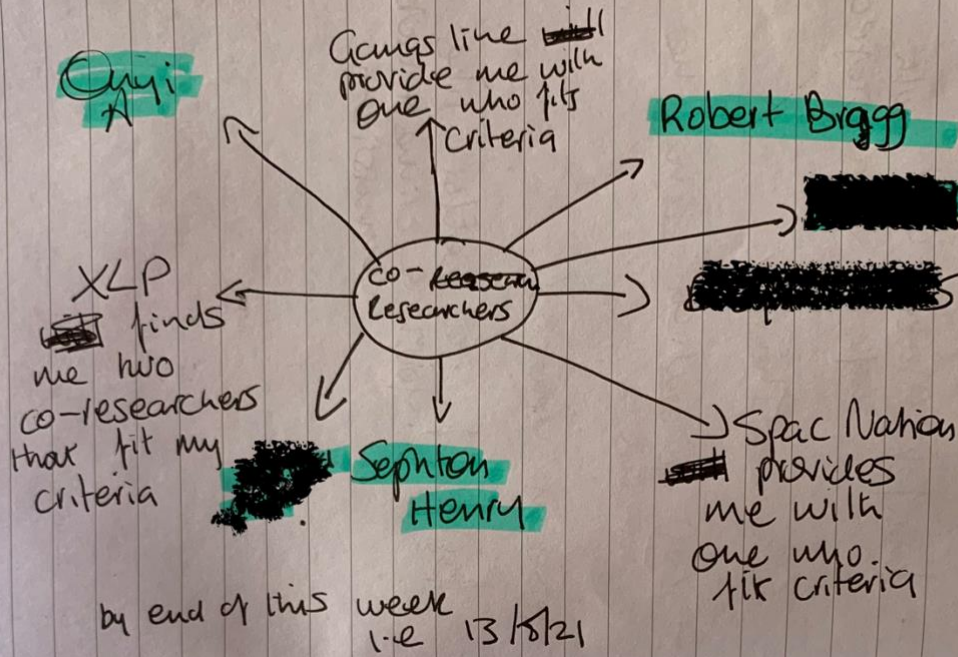 Gangs line
provide me with
one who fits
criteria
Onyi
A
Robert Bragg
co-
Researchers
XLP
finds
me two
co-researchers
that fit my
criteria
Sephton
Henry
Spac Nation
provides
me with
one who.
fit criteria
by end of this week
i.e 13/8/21